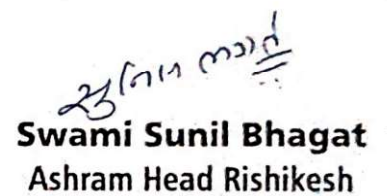 Swami Sunil Bhagat
Ashram Head Rishikesh